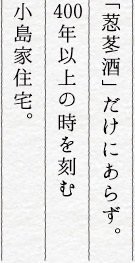 「葱茎酒」だけにあらず。
400年以上の時を刻む
小島家住宅。